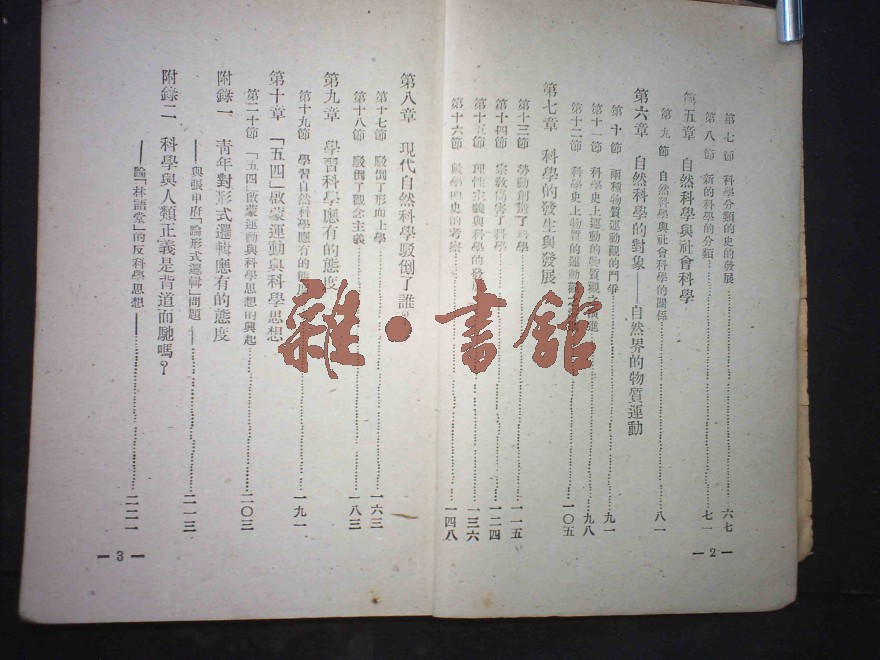 第七節 科學分類的史的發展……六七
第八節 新的科學的分類……七一
第五章 自然科學與社會科學
第九節 自然科學與社會科學的關係……八一
第六章 自然科學的對象——自然界的物質運動
第十節 兩種物質運動觀的鬥爭……九一
第十一節 科學史上運動的物質觀之演進……九八
第十二節 科學史上物質的運動觀之……一〇五
第七章 科學的發生與發展
第十三節 勞動創造了科學……一一五
第十四節 宗敎傷害了科學……一二四
第十五節 理性主義與科學的發展……一三六
第十六節 數學的史的考察……一四八
— 2 —
第八章 現代自然科學駁倒了誰?
第十七節 駁倒了形而上學……一六三
第十八節 駁倒了觀念主義……一八三
第九章 學習科學應有的態度
第十九節 學習自然科學應有的態度……一九一
第十章 「五四」啟蒙運動與科學思想
第二十節 「五四」啟蒙運動與科學思想的興起……二〇三
附錄一 靑年對形式邏輯應有的態度
——與張申府「論形式邏輯」問題——……二一三
附錄二 科學與人類正義是背道而馳嗎?
——論「林語堂」的反科學思想——……二二一
— 3 —
雜·書館